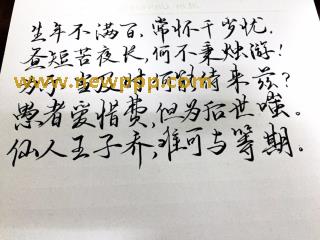 生年不满百，常怀千岁忧．
昼短苦夜长，何不秉烛游！
www.newppp.com
来兹？
愚者爱惜费，但为后世嗤。
仙人王子乔，难可与等期。